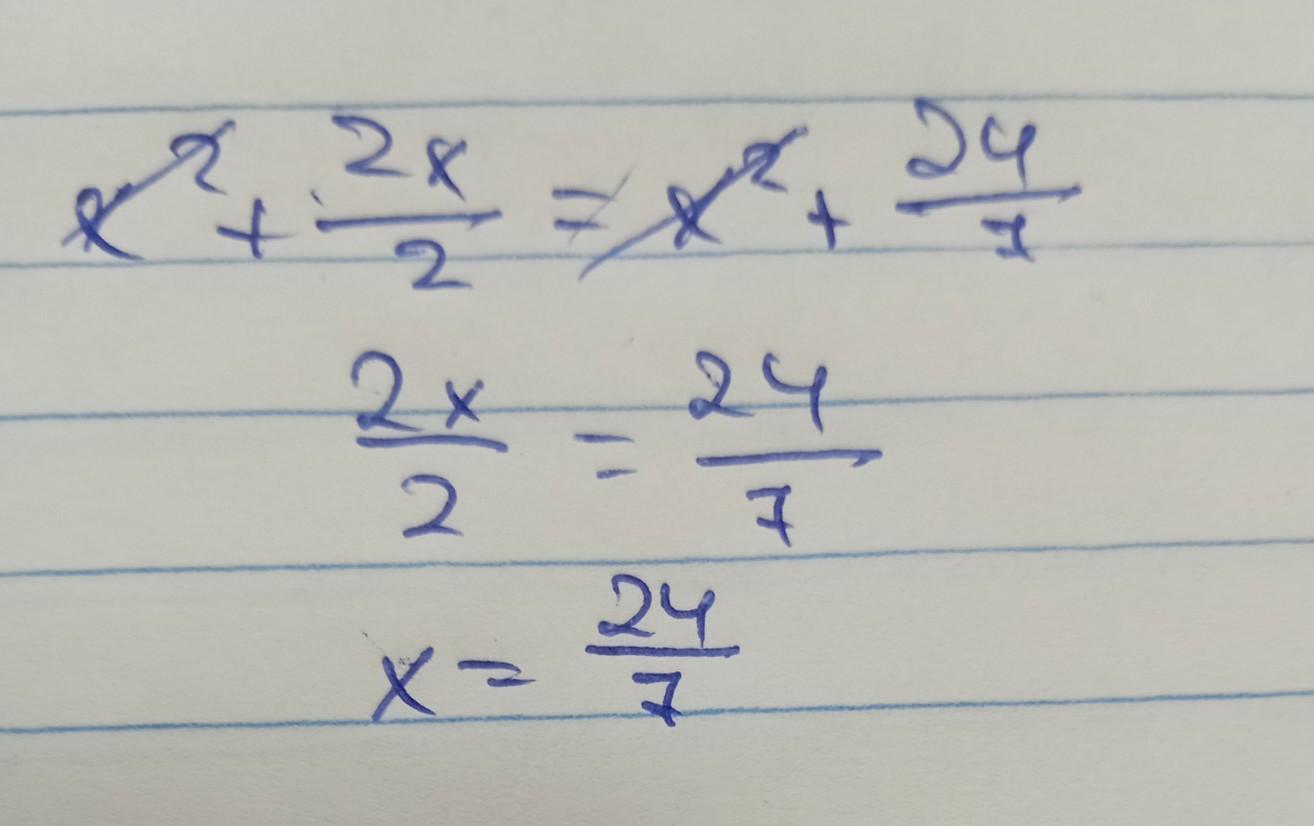 x² + 2x/2 = x² + 24/7
2x/2 = 24/7
x = 24/7